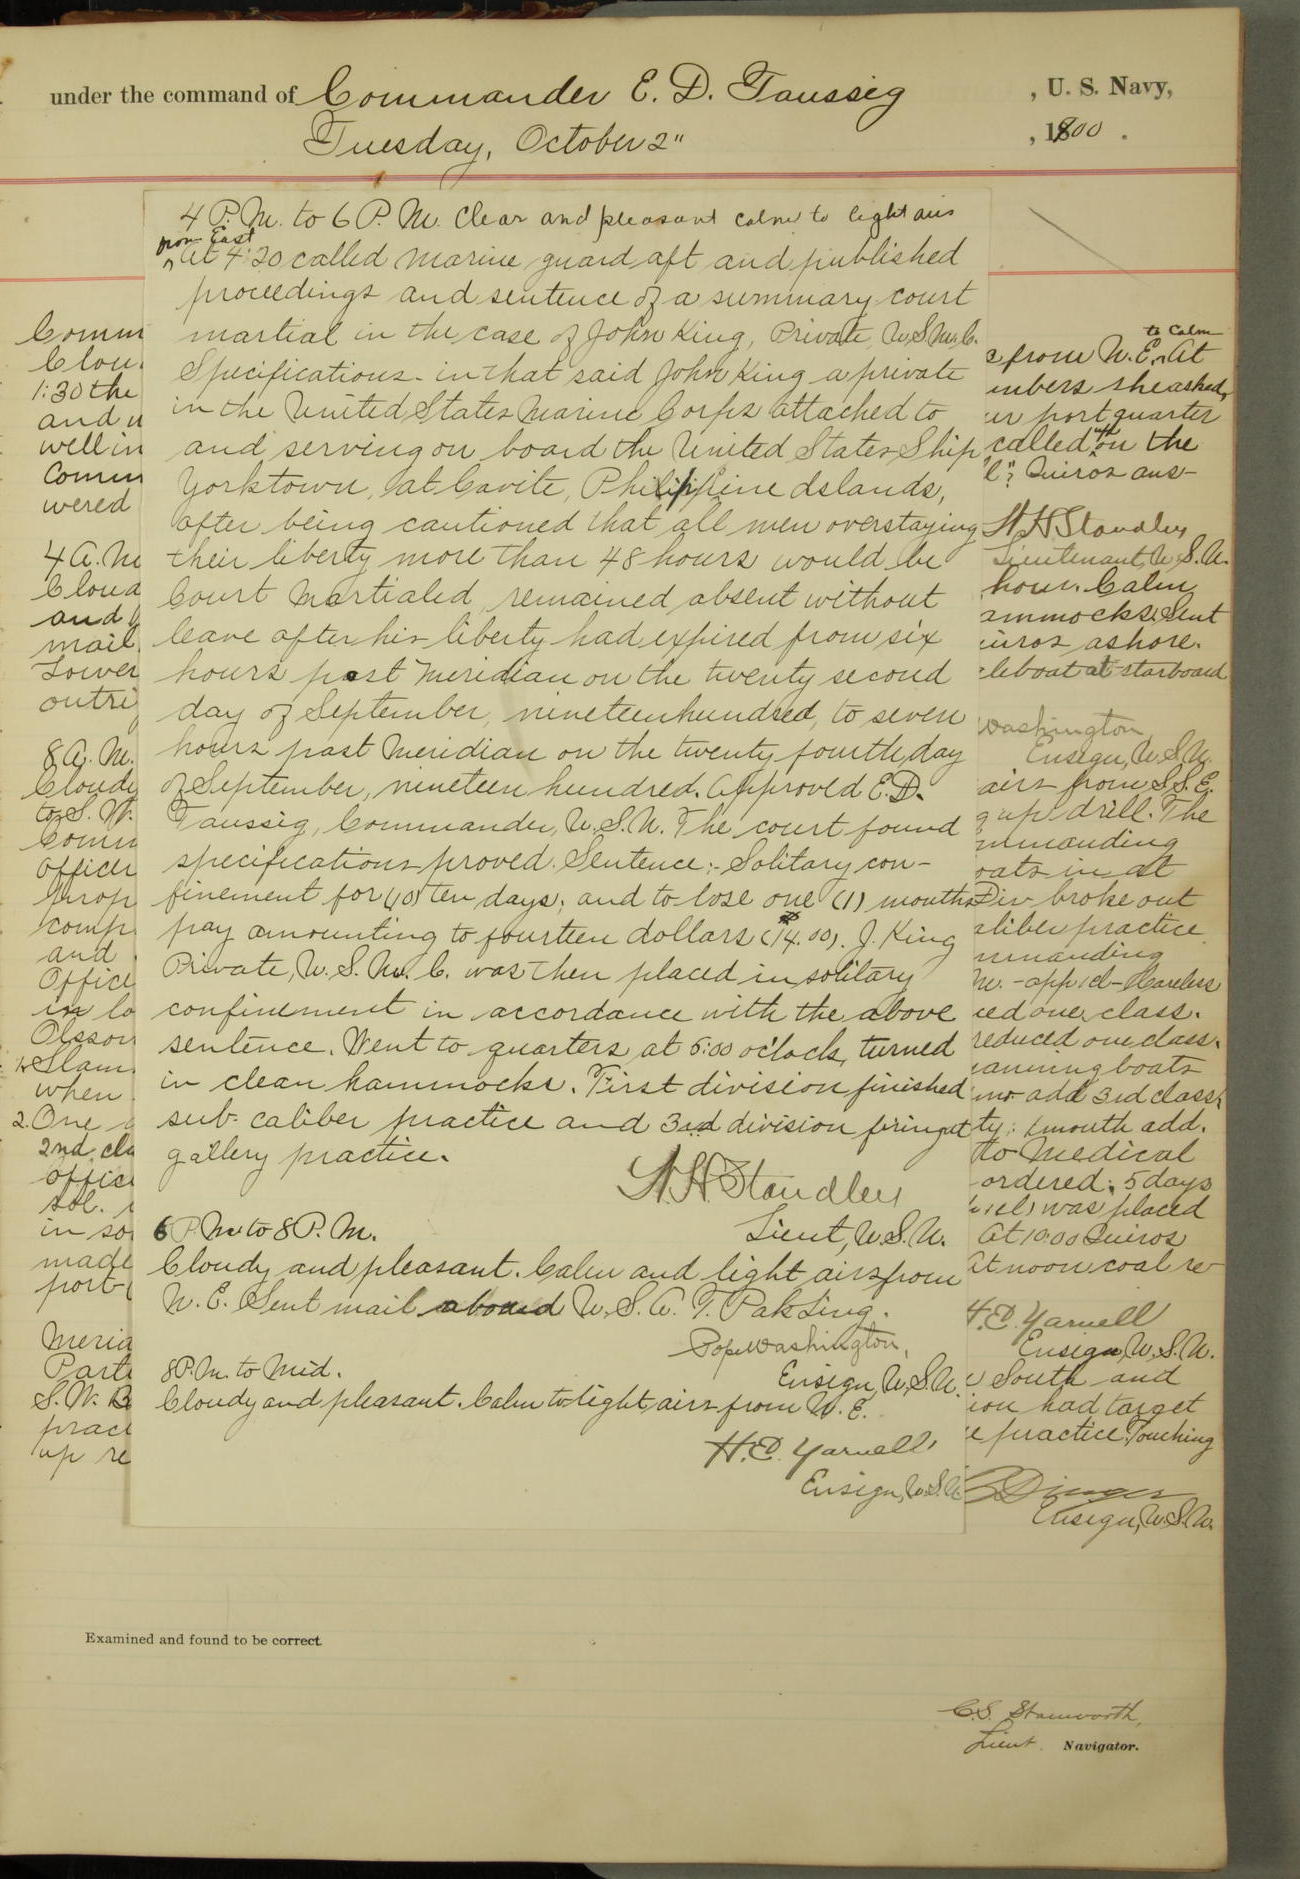 under the command of Commander E. D. Taussig, U. S. Navy,
Tuesday, October 2", 1900.
4 P.M. to 6 P.M. Clear and pleasant calm to light airs
from East
At 4:20 called marine guard aft and published
proceedings and sentence of a summary court
martial in the case of John King, Private, U.S.M.C.
Specifications - in that said John King a private
in the United States Marine Corps attached to
and serving on board the United States Ship
Yorktown, at Cavite, Philippine Islands,
after being cautioned that all men overstaying
their liberty more than 48 hours would be
Court Martialed, remained absent without
leave after his liberty had expired from six
hours past Meridian on the twenty second
day of September, nineteen hundred, to seven
hours past Meridian on the twenty fourth day
of September, nineteen hundred. Approved E.D.
Taussig, Commander, U.S.N. The court found
specifications proved. Sentence:- Solitary con-
finement for (10) ten days; and to lose one (1) months
pay amounting to fourteen dollars ($14.00). J. King
Private, U.S.M.C. was then placed in solitary
confinement in accordance with the above
sentence. Went to quarters at 5:00 o'clock, turned
in clean hammocks. First division finished
sub-caliber practice and 3rd division firing at
gallery practice.
W H Standley
Lieut, U.S.N.
6 P.M. to 8 P.M.
Cloudy and pleasant. Calm and light airs from
N.E. Sent mail aboard U.S.A.T. Pak Ling.
Pope Washington,
Ensign, U.S.N.
8 P.M. to Mid.
Cloudy and pleasant. Calm to light airs from N.E.
H.E. Yarnell,
Ensign, U.S.N.
Comm
Clou
1:30 the
and u
well in
Comm
wered
4 A.M
Cloud
and
mail
Lower
outri
8 A.M.
Cloudy
to S.W.
Comm
officer
prop
comp
and
Office
in lo
Olsson
1. Slam
when
2. One
2nd cla
offic
sol.
in so
made
port
Merid
Part
S.W. B
prac
up re
to Calm
e from N.E. At
mbers sheashed,
ur port quarter
called "4" on the
l"? Quiros ans-
W H Standley
Lieutenant, U.S.N.
hour. Calm
ammocks. Sent
uiros ashore.
leboat at starboard
Washington,
Ensign, U.S.N.
airs from S.S.E.
g up drill. The
mmanding
oats in at
Div broke out
aliber practice
mmanding
ne. - app'cl - Careless
ced one class.
reduced one class.
anning boats
mo add 3rd class
ty: 1 month add.
to Medical
ordered; 5 days
was placed
At 10:00 Quiros
At noon coal re-
H.E. Yarnell
Ensign, U.S.N.
South and
ion had target
e practice. Touching
Ensign, U.S.N.
Examined and found to be correct
C.S. Stanworth,
Lieut. Navigator.